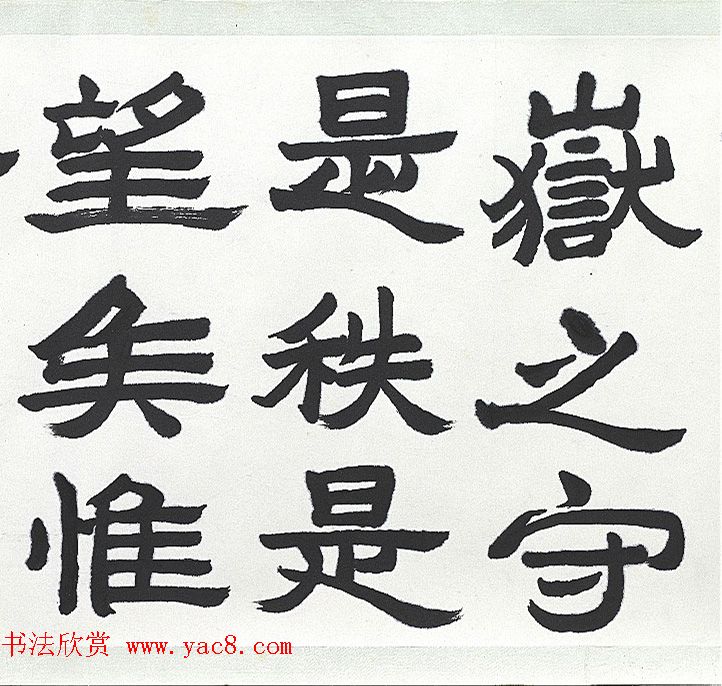 嶽之守
是秩是
望矣惟
书法欣赏 www.yac8.com